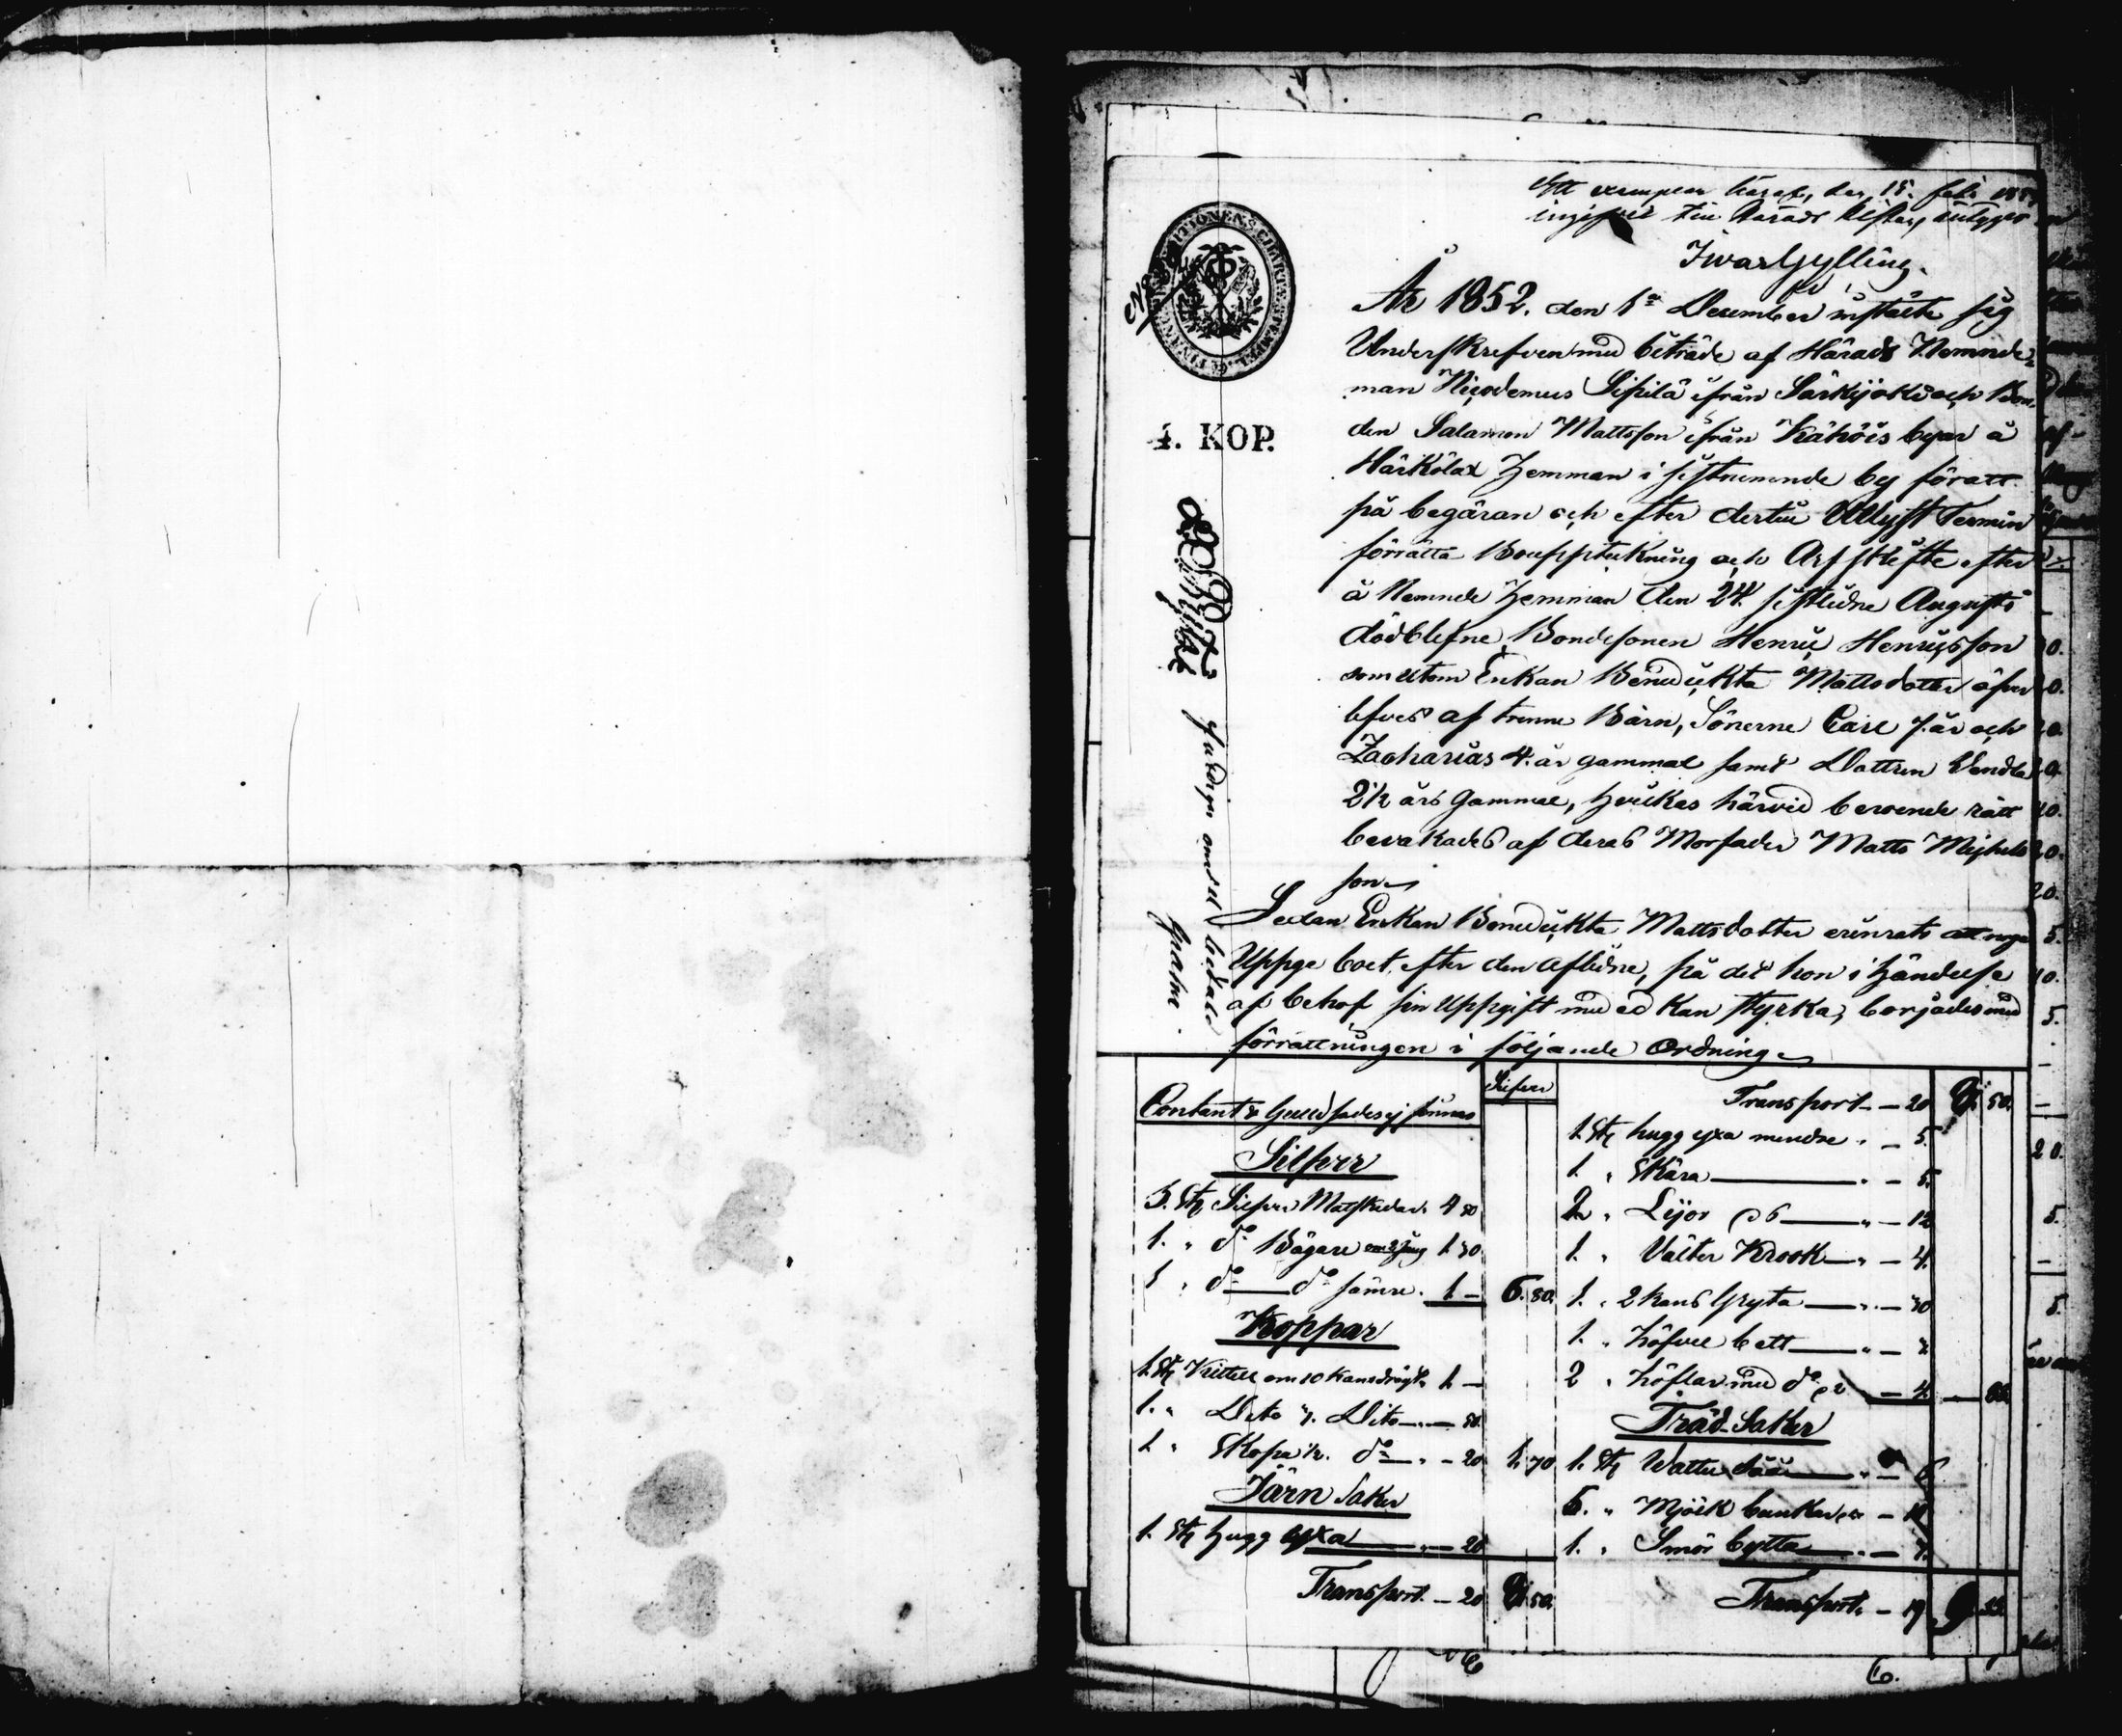 Ett exemplar häraf, den 15. feb. 185
ingifvet till Härads Kistan, intygar
Iwar Gylling.
År 1852. den 1a December instälte sig
Underskrefven med biträde af Härads Nemnde-
man Nicodemus Sipilä ifrån Särkijoki och Bon-
den Salamon Mattsson ifrån Kähöis byar å
Härkölax hemman i sistnemnde by för att
på begäran och efter dertill Utlyst Termin
förrätta Bouppteckning och Arfskifte efter
å Nemnde hemman den 24 sistledne Augusti
dödblefne Bondesonen Henric Henricsson
som utom Enkan Benedickta Mattsdotter öfver
lefves af trenne Barn, Sönerne Carl 7. år och
Zacharias 4. år gammal samt Dottren Wendla
2 1/2 års Gammal, hvilkas härvid beroende rätt
bevakades af deras Morfader Matts Michels
son
Sedan Enkan Benedickta Mattsdotter erinrats att noga
Uppge boet efter den Aflidne, på det hon i händelse
af behof sin uppgift med ed kan styrka, börjades med
förrättningen i följande Ordning
4. KOP.
Silfver
Contant & Guld saker ej finnas
Silfver
3. St Silfver Matskedar 4 50
1. " do Bägare 1 30
1 " do do sämre 1 — 6. 80.
Koppar
1. St Kittell om 10 Kans drägt 1 —
1. " Dito Dito — 50
1 " Skopa 1/2 do — 20 1. 70
Järn Saker
1. St hugg yxa — 20
Transport — 20 50.
Transport — 20 50.
1. St hugg yxa mindre — 5.
1 " Skära — 5.
2 " Lijor @ 6 — 12
1. " Välter Krook — 4.
1. " 2 kans Gryta — 30
1. " höfvel bett —
2 " höflar med do @ 2 — 4.
Träd-Saker
1. St Watten Såå — 6
5. " Mjölk bunkar — 10
1. " Smör bytta — 3.
Transport — 19 9